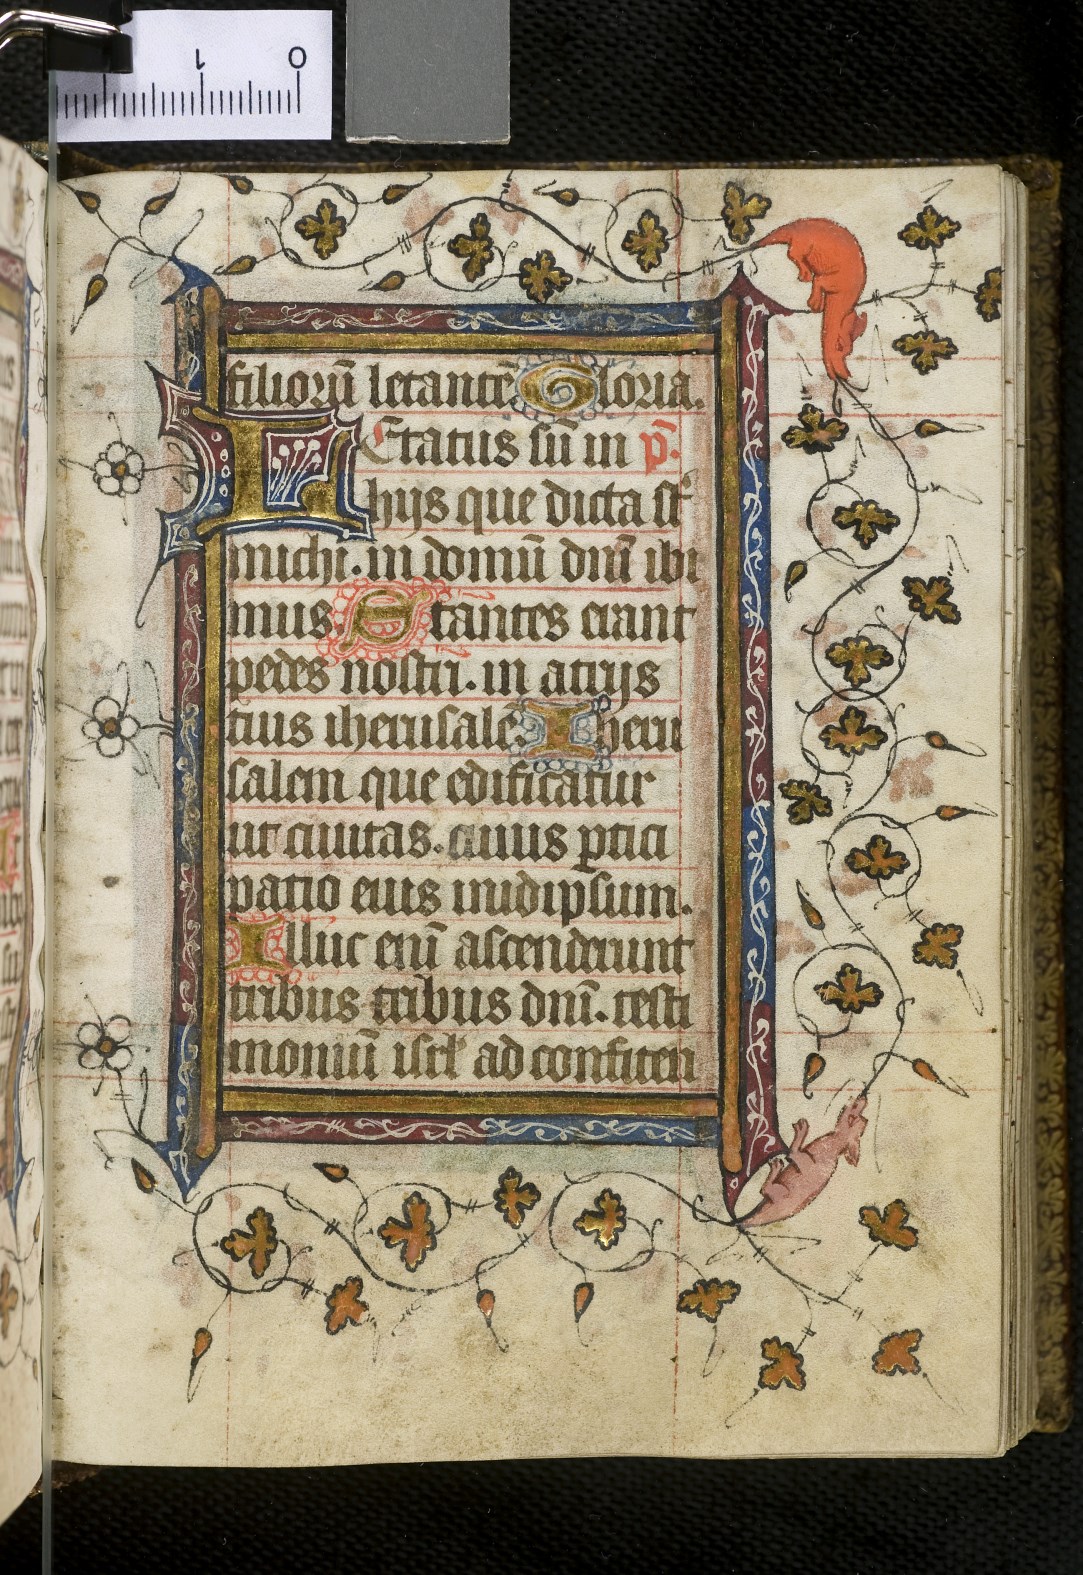 1 0
filiorū letantē Gloria.
LEtatus sū in p̄s.
hijs que dicta st̄
michi. in domū dn̄i ibi
mus Stantes erant
pedes nostri. in atrijs
tuis iherusalē Iheru
salem que edificatur
ut ciuitas. cuius ꝑtici
patio eius inidipsum.
Illuc eni᷒ ascenderunt
tribus tribus dn̄i. testi
moniū isrl̄ ad confiten